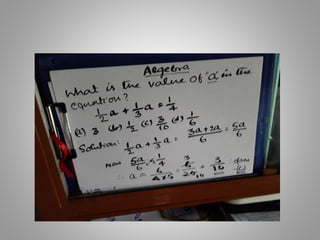 Algebra
What is the value of "a" in the
equation?
1/2 a + 1/3 a = 1/4
(a) 3 (b) 1/2 (c) 3/10 (d) 1/6
Solution: 1/2 a + 1/3 a = 3a+2a/6 = 5a/6
now 5a/6 = 1/4
∴ a = 6/4x5 = 6/20 = 3/10 : ans (c)